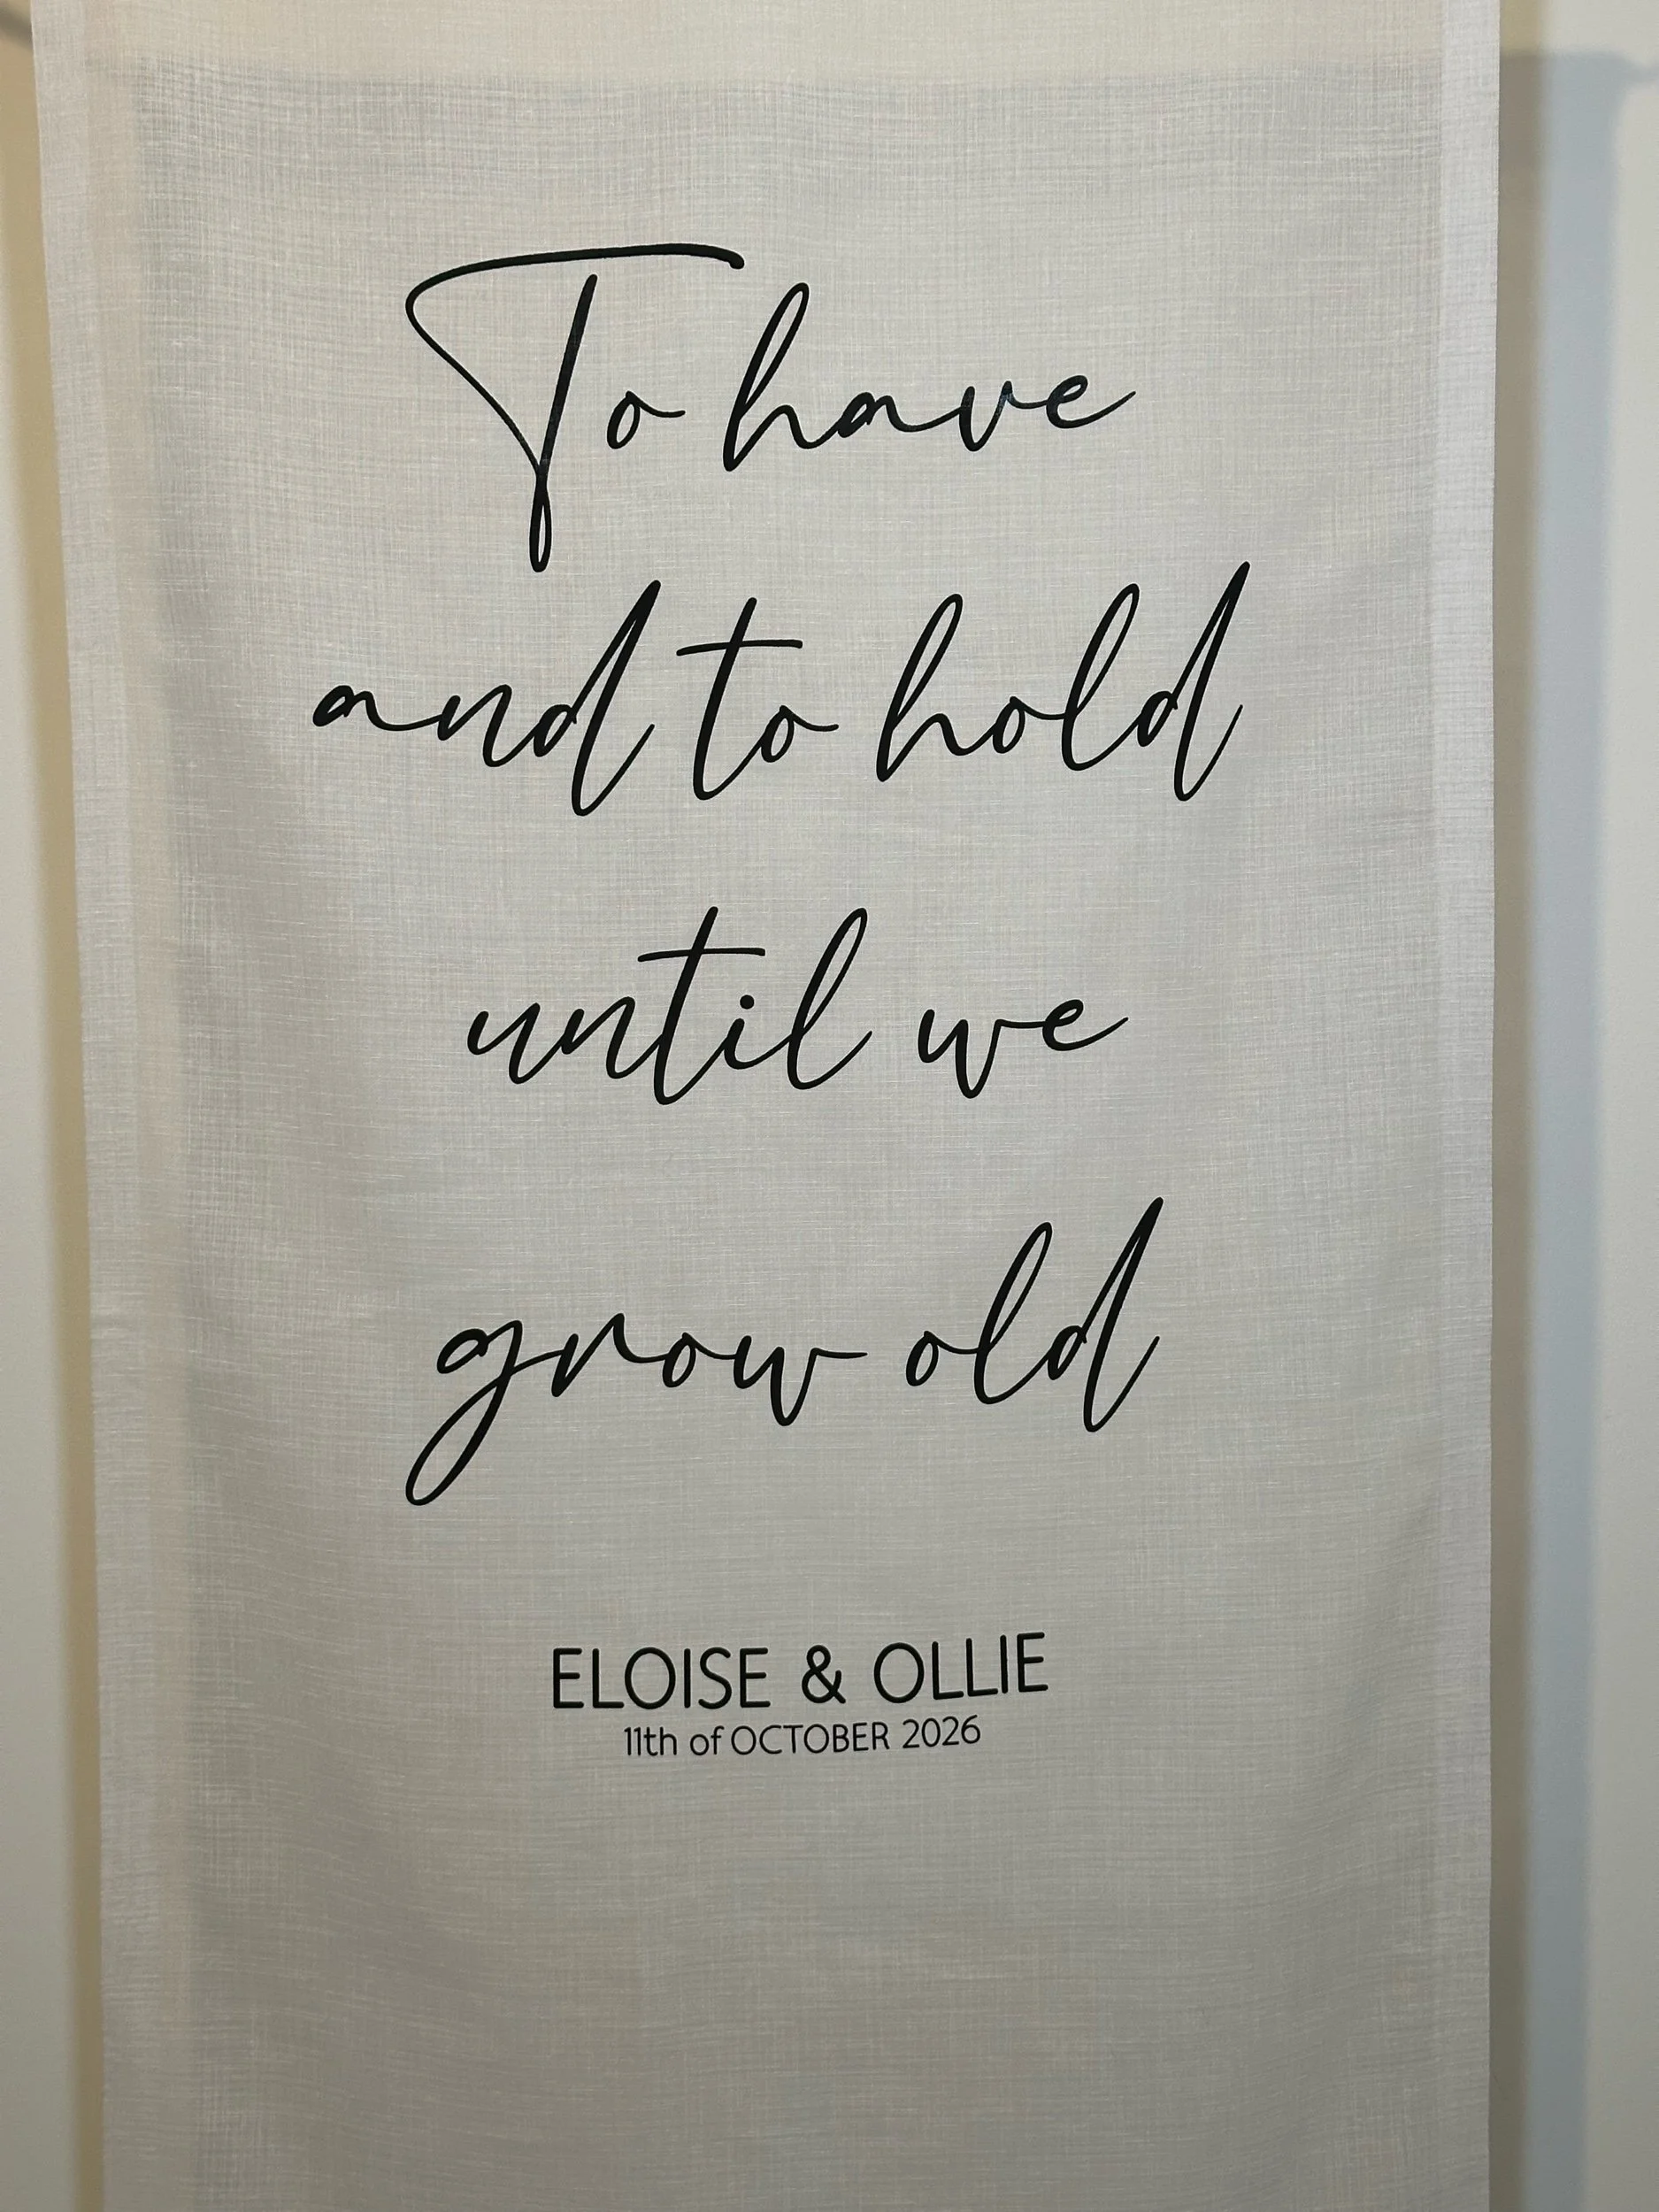 To have
and to hold
until we
grow old
ELOISE & OLLIE
11th of OCTOBER 2026